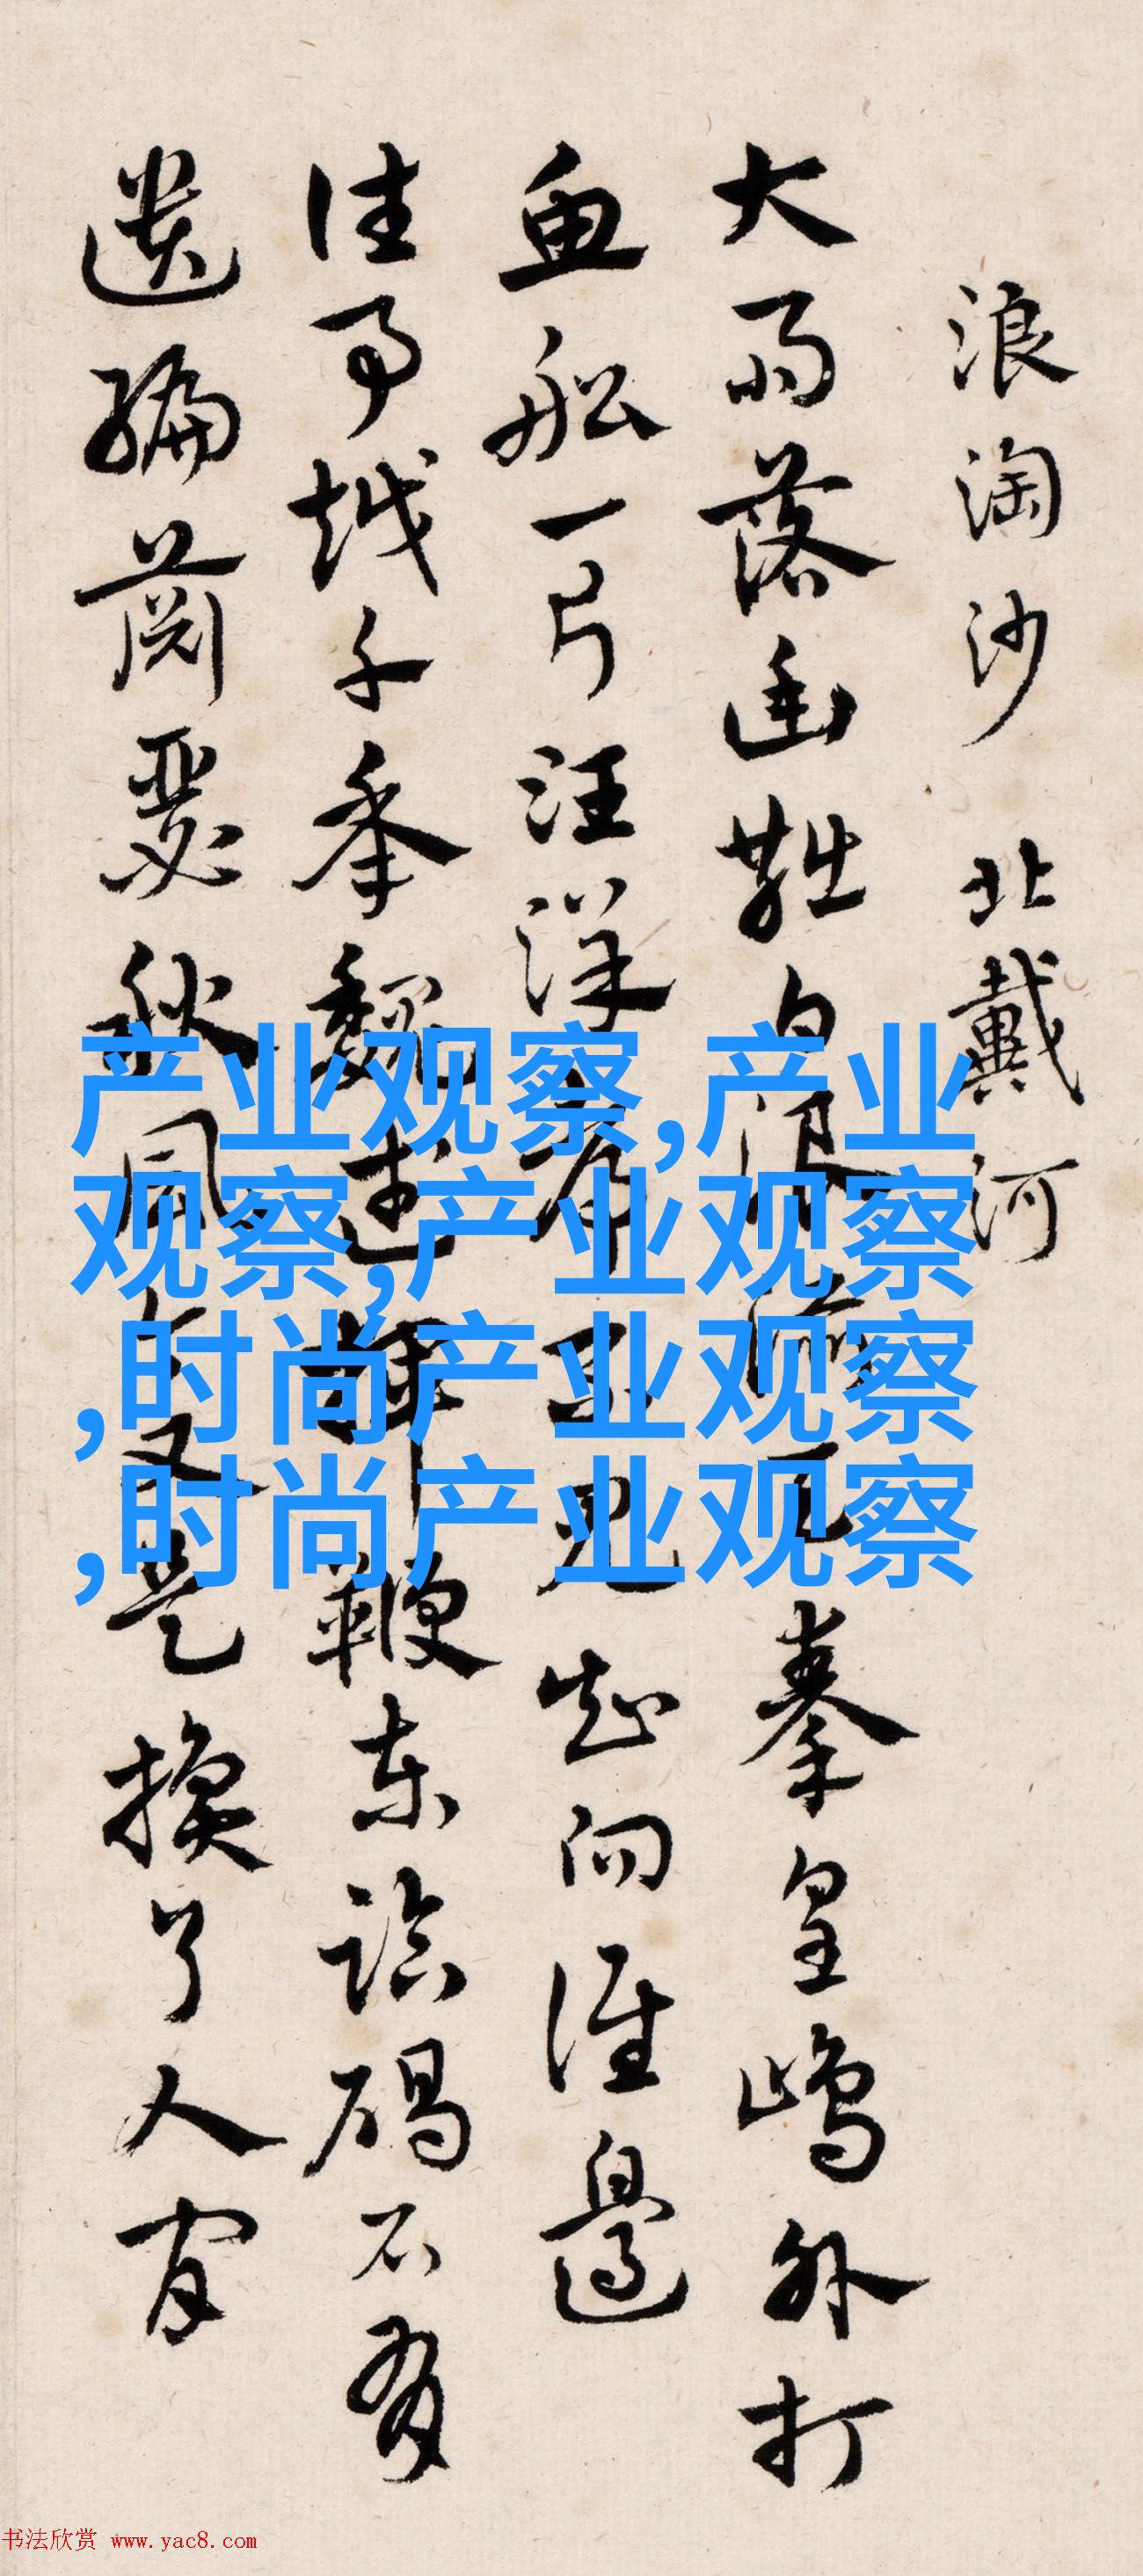 浪淘沙 北戴河
大雨落幽燕白浪滔天秦皇島外打
魚船一片汪洋都不見知向誰邊
往事越千年魏武揮鞭東臨碣石有
遺編蕭瑟秋風今又是換了人間
产业观察,产业
观察,产业观察
,时尚产业观察
,时尚产业观察
书法欣赏 www.yac8.com